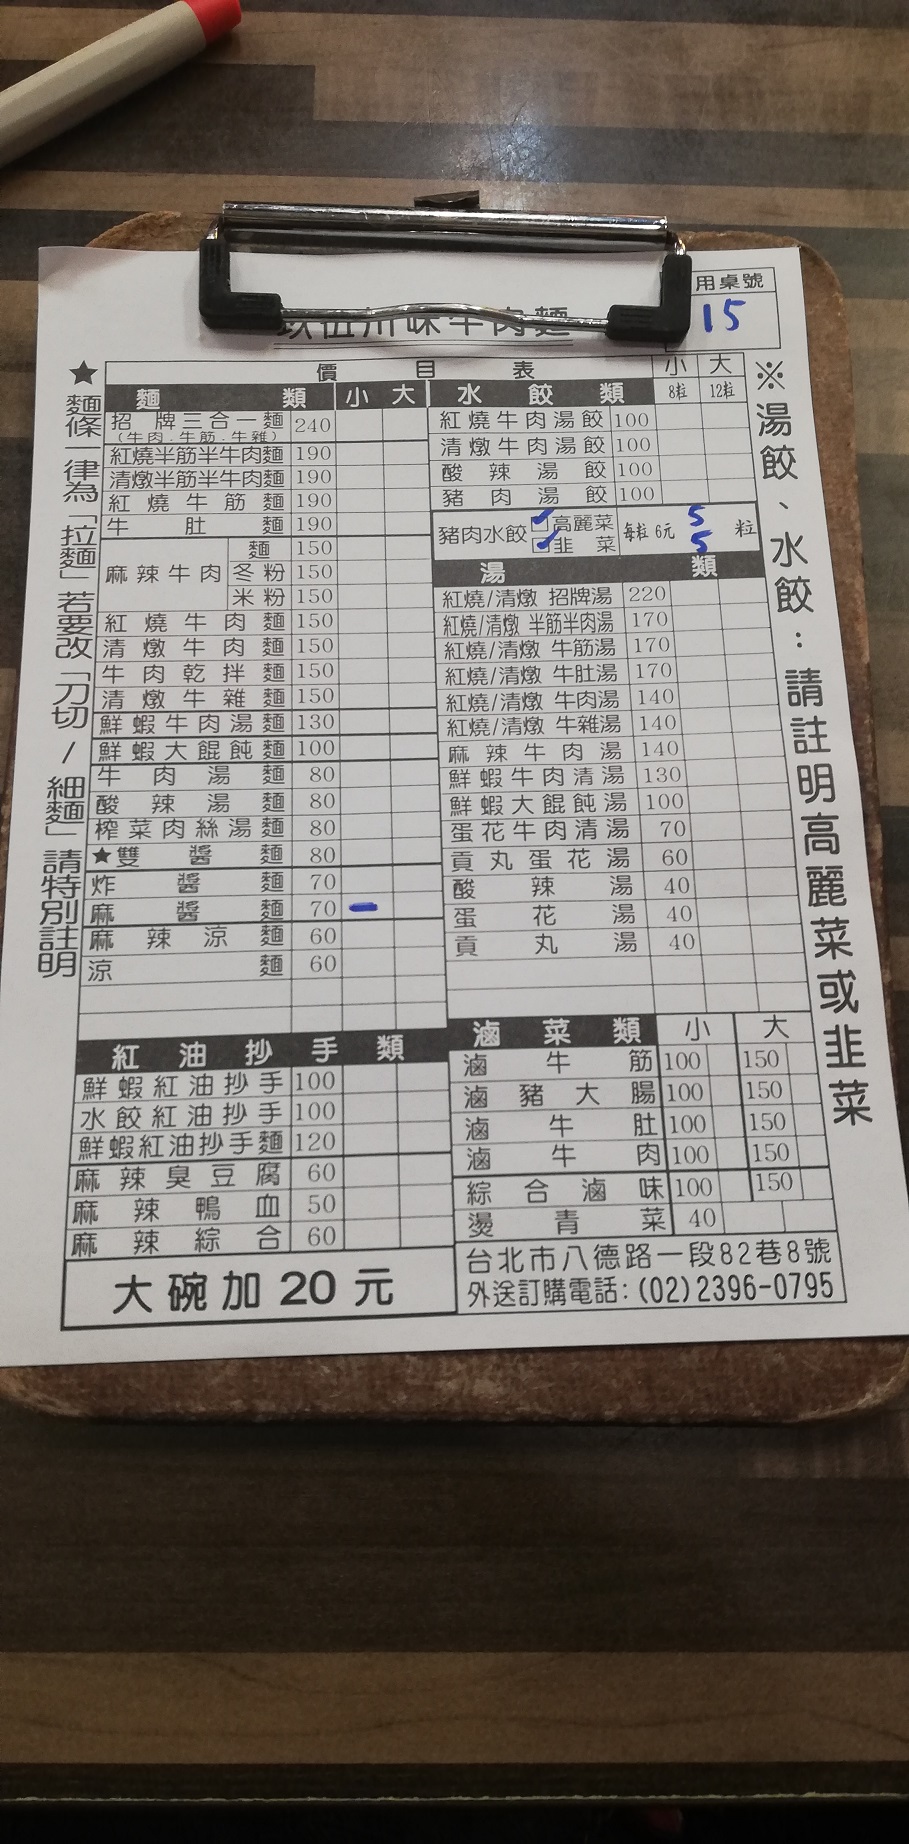 用桌號
15
川味牛肉麵
價目表
★麵條一律為「拉麵」若要改「刀切/細麵」請特別註明
麵類 小 大
招牌三合一麵 240
(牛肉.牛筋.牛雜)
紅燒半筋半牛肉麵 190
清燉半筋半牛肉麵 190
紅燒牛筋麵 190
牛肚麵 190
麻辣牛肉 麵 150
冬粉 150
米粉 150
紅燒牛肉麵 150
清燉牛肉麵 150
牛肉乾拌麵 150
清燉牛雜麵 150
鮮蝦牛肉湯麵 130
鮮蝦大餛飩麵 100
牛肉湯麵 80
酸辣湯麵 80
榨菜肉絲湯麵 80
★雙醬麵 80
炸醬麵 70
麻醬麵 70
麻辣涼麵 60
涼麵 60
紅油抄手類
鮮蝦紅油抄手 100
水餃紅油抄手 100
鮮蝦紅油抄手麵 120
麻辣臭豆腐 60
麻辣鴨血 50
麻辣綜合 60
大碗加20元
水餃類 小 8粒 大 12粒
紅燒牛肉湯餃 100
清燉牛肉湯餃 100
酸辣湯餃 100
豬肉湯餃 100
豬肉水餃 高麗菜 每粒6元 5 粒
韭菜 5
湯類
紅燒/清燉 招牌湯 220
紅燒/清燉 半筋半肉湯 170
紅燒/清燉 牛筋湯 170
紅燒/清燉 牛肚湯 170
紅燒/清燉 牛肉湯 140
紅燒/清燉 牛雜湯 140
麻辣牛肉湯 140
鮮蝦牛肉清湯 130
鮮蝦大餛飩湯 100
蛋花牛肉清湯 70
貢丸蛋花湯 60
酸辣湯 40
蛋花湯 40
貢丸湯 40
滷菜類 小 大
滷牛筋 100 150
滷豬大腸 100 150
滷牛肚 100 150
滷牛肉 100 150
綜合滷味 100 150
燙青菜 40
台北市八德路一段82巷8號
外送訂購電話:(02)2396-0795
※湯餃、水餃:請註明高麗菜或韭菜